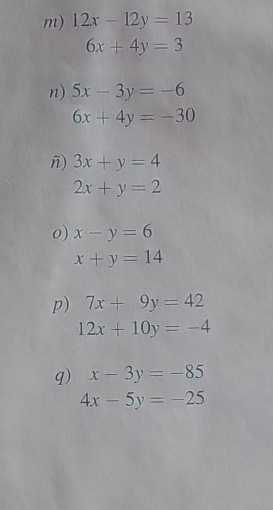 m) 12x − 12y = 13
6x + 4y = 3
n) 5x − 3y = −6
6x + 4y = −30
ñ) 3x + y = 4
2x + y = 2
o) x − y = 6
x + y = 14
p) 7x + 9y = 42
12x + 10y = −4
q) x − 3y = −85
4x − 5y = −25